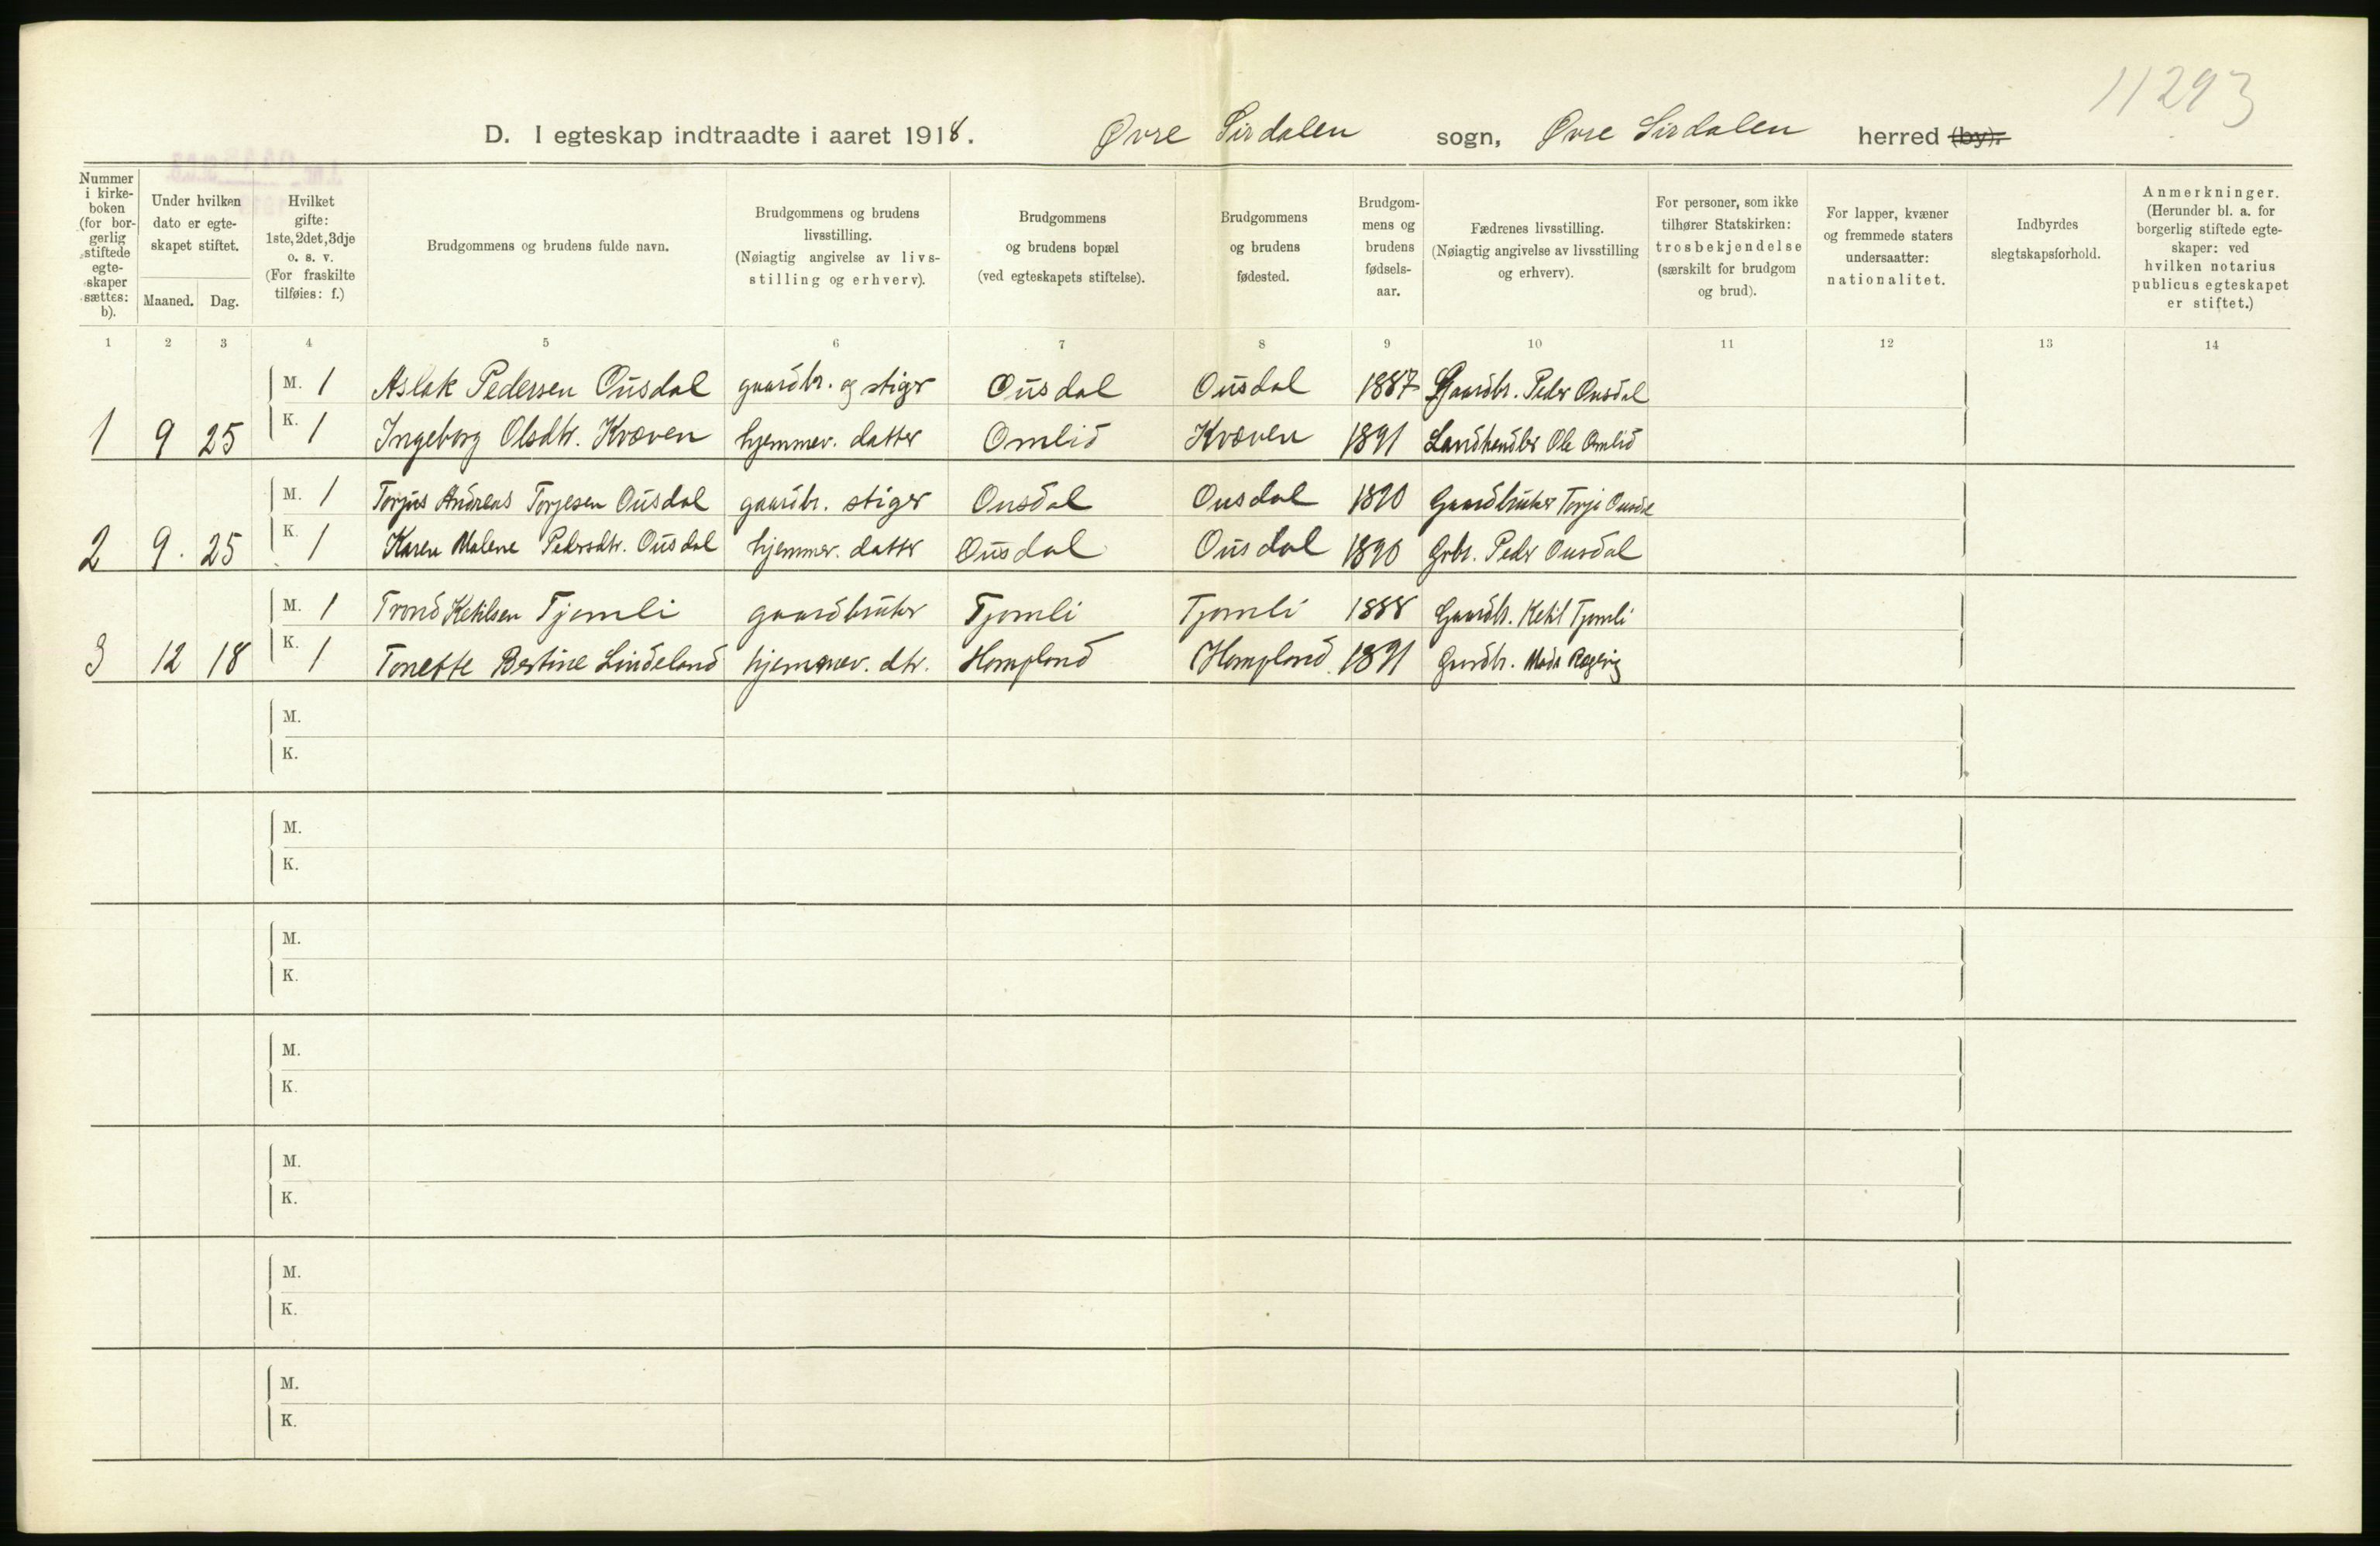 11293
D. I egteskap indtraadte i aaret 1918. Øvre Sirdalen sogn, Øvre Sirdalen herred (by).
Nummer i kirkeboken (for borgerlig stiftede egteskaper sættes: b).
Under hvilken dato er egteskapet stiftet.
Maaned. Dag.
Hvilket gifte: 1ste, 2det, 3dje o. s. v. (For fraskilte tilføies: f.)
Brudgommens og brudens fulde navn.
Brudgommens og brudens livsstilling. (Nøiagtig angivelse av livsstilling og erhverv).
Brudgommens og brudens bopæl (ved egteskapets stiftelse).
Brudgommens og brudens fødested.
Brudgommens og brudens fødselsaar.
Fædrenes livsstilling. (Nøiagtig angivelse av livsstilling og erhverv).
For personer, som ikke tilhører Statskirken: trosbekjendelse (særskilt for brudgom og brud).
For lapper, kvæner og fremmede staters undersaatter: nationalitet.
Indbyrdes slegtskapsforhold.
Anmerkninger. (Herunder bl. a. for borgerlig stiftede egteskaper: ved hvilken notarius publicus egteskapet er stiftet.)
1 2 3 4 5 6 7 8 9 10 11 12 13 14
M. 1 Aslak Pedersen Ousdal gaardbr. og stiger Ousdal Ousdal 1887 Gaardbr. Peder Ousdal
1 9 25 K. 1 Ingeborg Olsdtr. Kvæven hjemmev. datter Omlid Kvæven 1891 Landhandler Ole Omlid
M. 1 Torjus Andreas Torjesen Ousdal gaardbr. stiger Ousdal Ousdal 1890 Gaardbruker Torje Ousdal
2 9. 25 K. 1 Karen Malene Pedersdtr. Ousdal hjemmev. datter Ousdal Ousdal 1890 Grbr. Peder Ousdal
M. 1 Trond Ketilsen Tjomli gaardbruker Tjomli Tjomli 1888 Gaardb. Ketil Tjomli
3 12 18 K. 1 Tonette Bertine Lindeland hjemmev. dtr. Hompland Hompland 1891 Gardbr. Mads
M.
K.
M.
K.
M.
K.
M.
K.
M.
K.
M.
K.
M.
K.